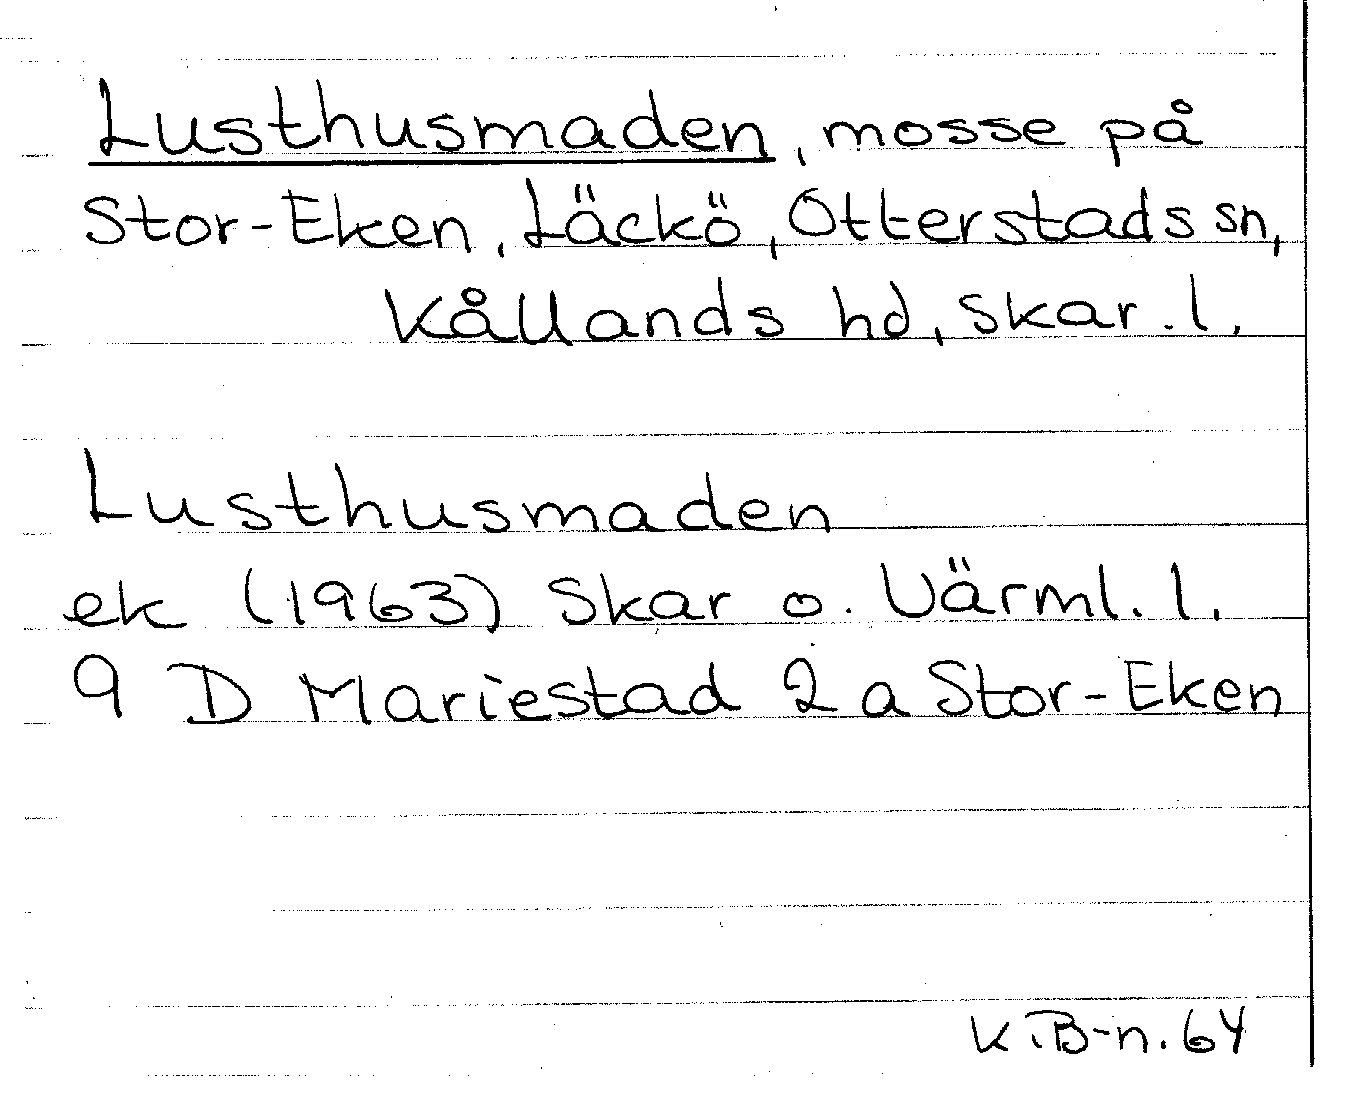 Lusthusmaden, mosse på
Stor-Eken, Läckö, Otterstads sn,
Kållands hd, Skar. l.
Lusthusmaden
ek (1963) Skar o. Värml. l.
9 D Mariestad 2 a Stor-Eken
K.B-n. 64